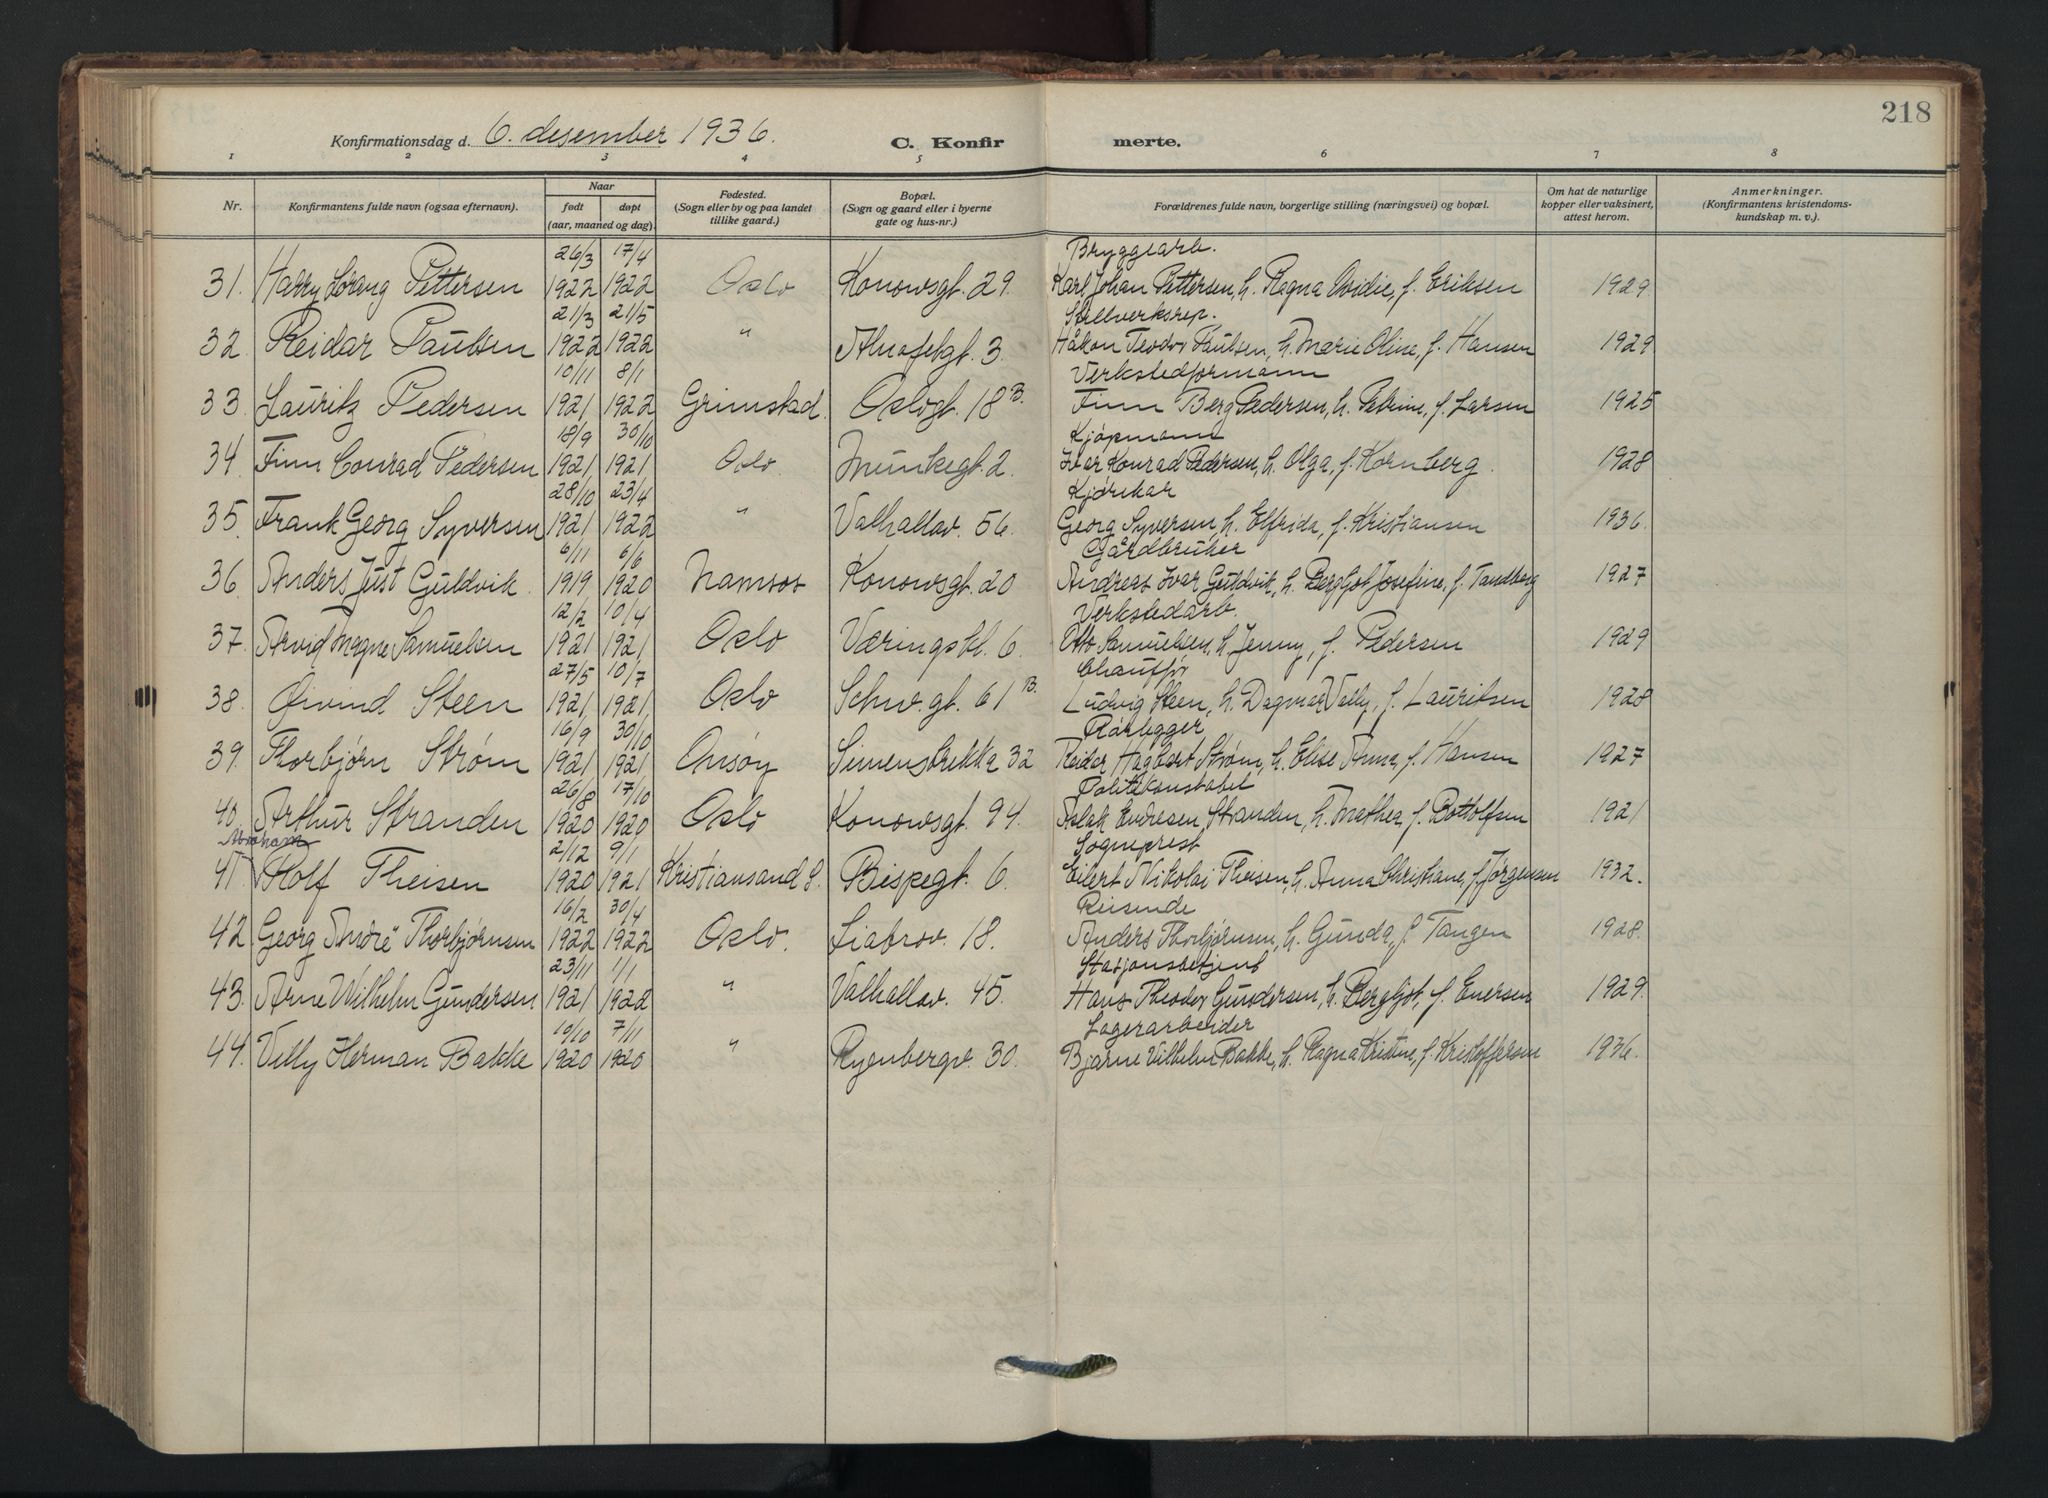 218
Konfirmationsdag d. 6. desember 1936.
C. Konfirmerte.
1 2 3 4 5 6 7 8
Nr.
Konfirmantens fulde navn (ogsaa efternavn).
Naar
født
døpt
(aar, maaned og dag).
Fødested.
(Sogn eller by og paa landet
tillike gaard.)
Bopæl.
(Sogn og gaard eller i byerne
gate og hus-nr.)
Forældrenes fulde navn, borgerlige stilling (næringsvei) og bopæl.
Om hat de naturlige
kopper eller vaksinert,
attest herom.
Anmerkninger.
(Konfirmantens kristendoms-
kundskap m. v.).
26/3 17/4 Bryggearb.
31. Harry Pettersen 1922 1922 Oslo Konowsgt. 29. Karl Johan Pettersen, h. Ragna Ovidie, f. Eriksen 1929
21/3 21/5 Stillverksrep.
32. Reidar Paulsen 1922 1922 " 3. Håkon Teodor Paulsen, h. Marie Oline, f. Hansen 1929
10/11 8/1 Verkstedformann
33. Lauritz Pedersen 1921 1922 Grimstad. Oslogt. 18 B. Finn Berg Pedersen, h. Petrine, f. Larsen 1925
18/9 30/10 Kjøpmann
34. Finn Conrad Pedersen 1921 1921 Oslo Munkegt. 2. Ivar Konrad Pedersen, h. Olga, f. Kornberg. 1928
28/10 23/4 Kjørekar
35. Frank Georg Syversen 1921 1922 " Valhallav. 56. Georg Syversen, h. Elfrida, f. Kristiansen 1936.
6/11 6/6 Gårdbruker
36. Anders Just Guldvik 1919 1920 Namsos Konowsgt. 20 Andreas Ivar Guldvik, h. Bergljot Josefine, f. Tandberg 1927
12/2 10/4 Verkstedarb.
37. Arvid Magne Samuelsen 1921 1921 Oslo Væringskl. 6. Otto Samuelsen, h. Jenny, f. Pedersen 1929
27/5 10/7 Chauffør
38. Øivind Steen 1921 1921 Oslo Schw.gt. 61 B. Ludvig Steen, h. Dagmar Vally, f. Lauritsen 1928
16/9 30/10 Rørlegger
39. Thorbjørn Strøm 1921 1921 Onsøy Simensbrekka 32 Reidar Hagbart Strøm, h. Elise Anna, f. Hansen 1927
26/8 17/10 Politikonstabel
40. Arthur Stranden 1920 1920 Oslo Konowsgt. 94. Aslak Endresen Stranden, h. Mathea f. Bottolfsen 1921
Abraham 2/12 9/1 Sogneprest
41. Rolf Theisen 1920 1921 Kristiansand S. Bispegt. 6. Eilert Nikolai Theisen, h. Anna Christiane, f. Jørgensen 1932.
16/2 30/4 Reisende
42. Georg André Thorbjørnsen 1922 1922 Oslo. Liabrov. 18. Anders Thorbjørnsen, h. Gunda, f. Tangen 1928.
23/11 1/1 Stasjonsbetjent
43. Arne Wilhelm Gundersen. 1921 1922 " Valhallav. 45. Hans Theodor Gundersen, h. Bergljot, f. Enersen 1929.
10/10 7/11 Lagerarbeider
44. Villy Herman Bakke 1920 1920 " Ryenbergv. 30. Bjarne Vilhelm Bakke, h. Ragna Kristine, f. Kristoffersen 1936.